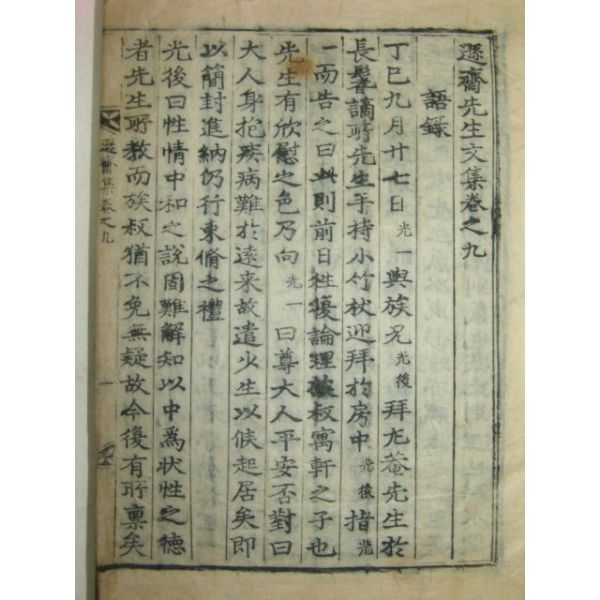 遜齋先生文集卷之九
語錄
丁巳九月廿七日光一與族兄光後拜尤菴先生於
長鬐謫所先生手持小竹杖迎拜於房中光後指光
一而告之曰此則前日往復論理族叔寓軒之子也
先生有欣慰之色乃向光一曰尊大人平安否對曰
大人身抱疾病難於遠来故遣少生以候起居矣即
以簡封進納仍行束脩之禮
光後曰性情中和之說固難解知以中爲狀性之德
者先生所教而族叔猶不免無疑故今後有所禀矣
遜齋集卷之九
一